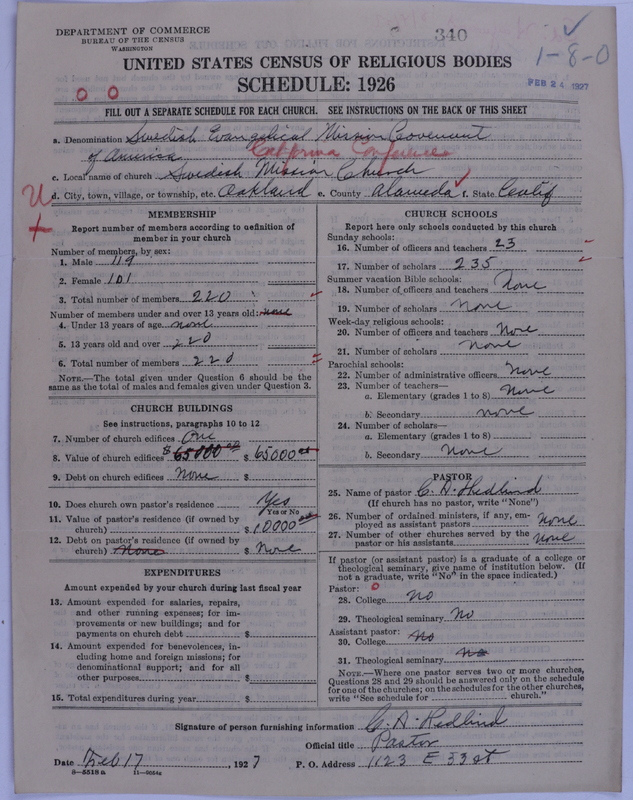 DEPARTMENT OF COMMERCE
BUREAU OF THE CENSUS
WASHINGTON
340
1-8-0
FEB 24 1927
UNITED STATES CENSUS OF RELIGIOUS BODIES
SCHEDULE: 1926
FILL OUT A SEPARATE SCHEDULE FOR EACH CHURCH. SEE INSTRUCTIONS ON THE BACK OF THIS SHEET
a. Denomination Swedish Evangelical Mission Covenant
of America California Conference
c. Local name of church Swedish Mission Church
d. City, town, village, or township, etc. Oakland e. County Alameda f. State Calif
MEMBERSHIP
Report number of members according to definition of
member in your church
Number of members, by sex:
1. Male 119
2. Female 101
3. Total number of members 220
Number of members under and over 13 years old: none
4. Under 13 years of age none
5. 13 years old and over 220
6. Total number of members 220
NOTE.—The total given under Question 6 should be the
same as the total of males and females given under Question 3.
CHURCH BUILDINGS
See instructions, paragraphs 10 to 12
7. Number of church edifices One
8. Value of church edifices $65000 $65000
9. Debt on church edifices None $
10. Does church own pastor's residence Yes
Yes or No
11. Value of pastor's residence (if owned by
church) $10000
12. Debt on pastor's residence (if owned by
church) None $ None
EXPENDITURES
Amount expended by your church during last fiscal year
13. Amount expended for salaries, repairs,
and other running expenses; for im-
provements or new buildings; and for
payments on church debt $
14. Amount expended for benevolences, in-
cluding home and foreign missions; for
denominational support; and for all
other purposes $
15. Total expenditures during year $
CHURCH SCHOOLS
Report here only schools conducted by this church
Sunday schools:
16. Number of officers and teachers 23
17. Number of scholars 235
Summer vacation Bible schools:
18. Number of officers and teachers None
19. Number of scholars None
Week-day religious schools:
20. Number of officers and teachers None
21. Number of scholars None
Parochial schools:
22. Number of administrative officers None
23. Number of teachers—
a. Elementary (grades 1 to 8) None
b. Secondary none
24. Number of scholars—
a. Elementary (grades 1 to 8)
b. Secondary None
PASTOR
25. Name of pastor C. A. Hedlind
(If church has no pastor, write "None")
26. Number of ordained ministers, if any, em-
ployed as assistant pastors None
27. Number of other churches served by the
pastor or his assistants None
If pastor (or assistant pastor) is a graduate of a college or
theological seminary, give name of institution below. (If
not a graduate, write "No" in the space indicated.)
Pastor:
28. College No
29. Theological seminary No
Assistant pastor:
30. College No
31. Theological seminary No
NOTE.—Where one pastor serves two or more churches,
Questions 28 and 29 should be answered only on the schedule
for one of the churches; on the schedules for the other churches,
write "See schedule for church."
Signature of person furnishing information C. A. Hedlind
Official title Pastor
Date Feb 17, 1927 P. O. Address 1123 E 33 st
8—5518 a